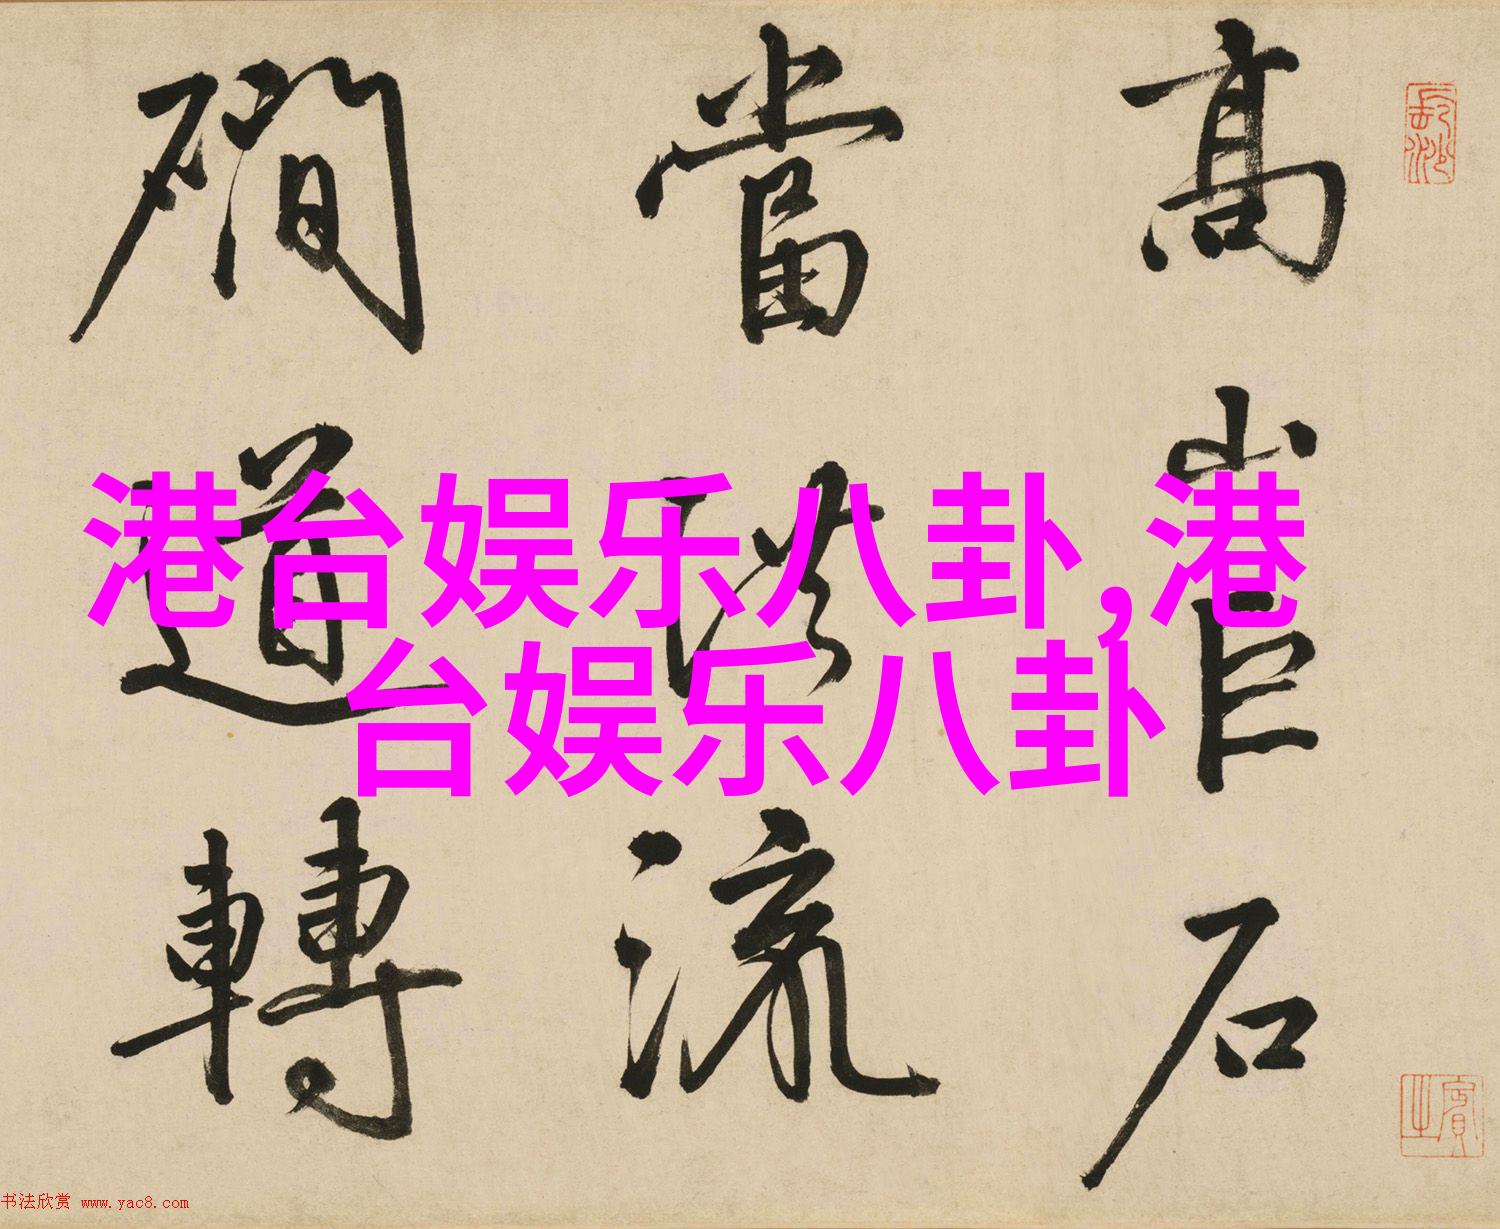 高山巨石
當洪流
磵道轉
港台娱乐八卦,港
台娱乐八卦
书法欣赏 www.yac8.com